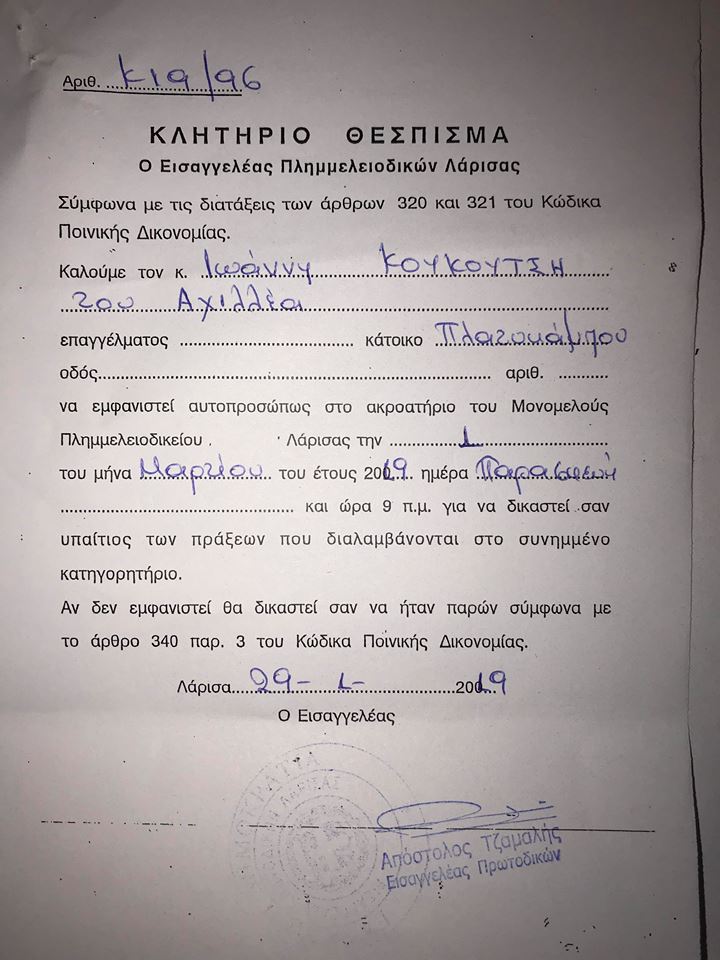 Αριθ. Κ19/96
ΚΛΗΤΗΡΙΟ ΘΕΣΠΙΣΜΑ
Ο Εισαγγελέας Πλημμελειοδικών Λάρισας
Σύμφωνα με τις διατάξεις των άρθρων 320 και 321 του Κώδικα
Ποινικής Δικονομίας.
Καλούμε τον κ. Ιωάννη ΚΟΥΚΟΥΤΣΗ
του Αχιλλέα
επαγγέλματος κάτοικο Πλατυκάμπου
οδός αριθ.
να εμφανιστεί αυτοπροσώπως στο ακροατήριο του Μονομελούς
Πλημμελειοδικείου Λάρισας την 1
του μήνα Μαρτίου του έτους 2019 ημέρα Παρασκευή
και ώρα 9 π.μ. για να δικαστεί σαν
υπαίτιος των πράξεων που διαλαμβάνονται στο συνημμένο
κατηγορητήριο.
Αν δεν εμφανιστεί θα δικαστεί σαν να ήταν παρών σύμφωνα με
το άρθρο 340 παρ. 3 του Κώδικα Ποινικής Δικονομίας.
Λάρισα 29-1-2019
Ο Εισαγγελέας
Απόστολος Τζαμαλής
Εισαγγελέας Πρωτοδικών